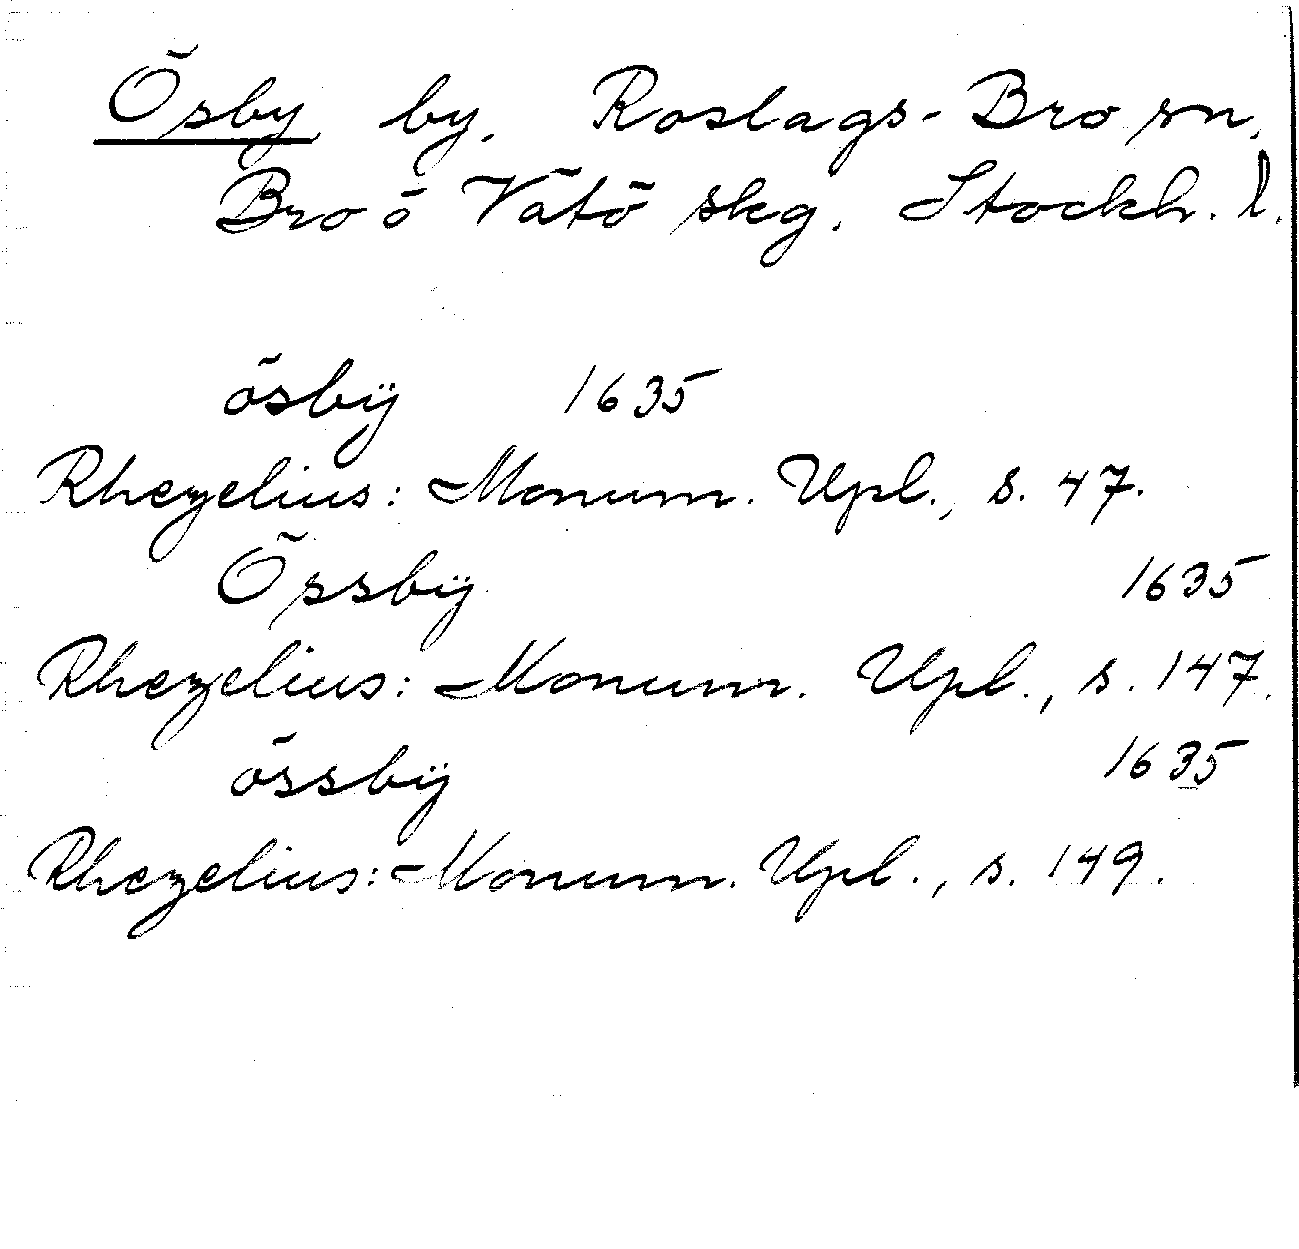 Ösby by, Roslags-Bro sn,
Bro o Vätö skg. Stockh. l.
ösbÿ 1635
Rhezelius: Monum. Upl., s. 47.
Össbÿ 1635
Rhezelius: Monum. Upl., s. 147.
össbÿ 1635
Rhezelius: Monum. Upl., s. 149.